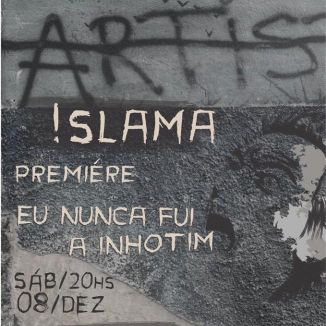 ARTIS
!SLAMA
PREMIÉRE
EU NUNCA FUI
A INHOTIM
SÁB/20HS
08/DEZ